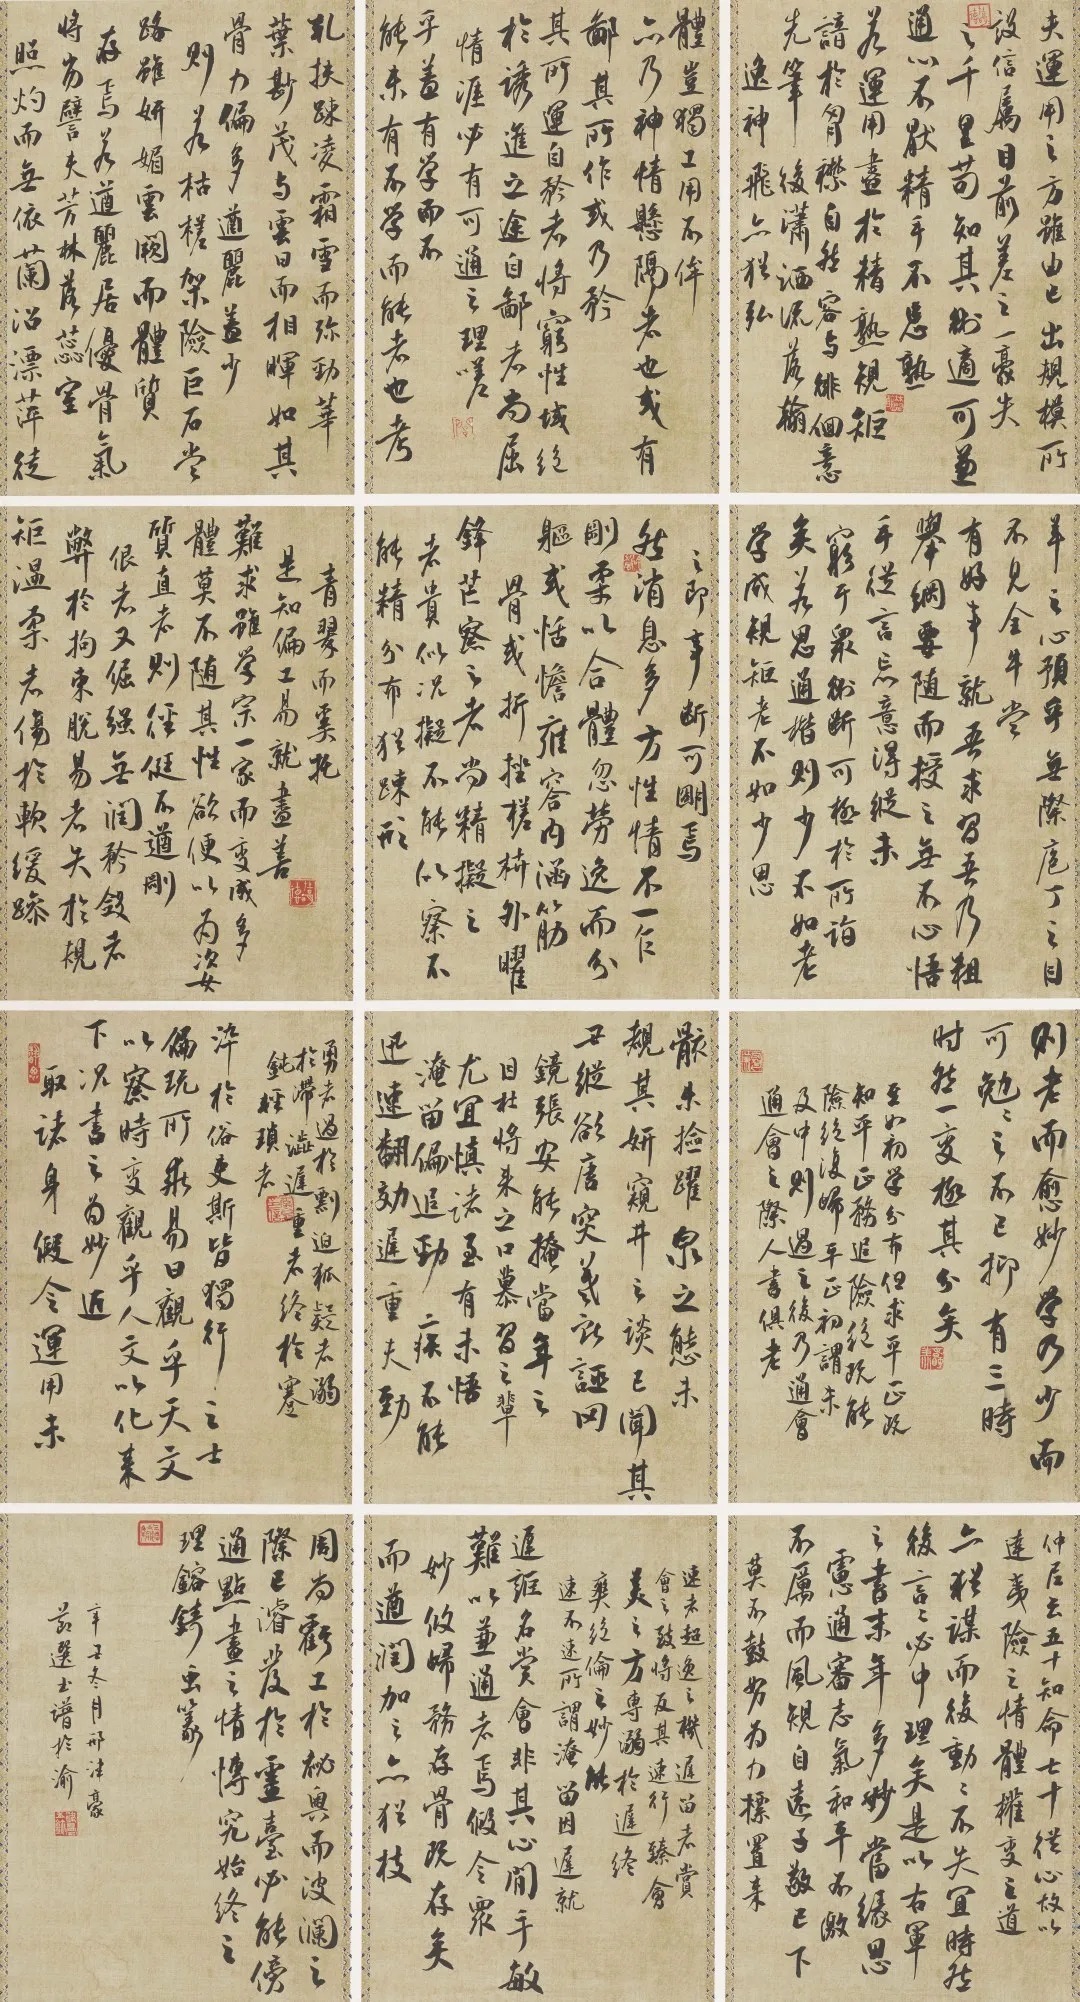 夫運用之方雖由己出規模所
設信屬目前差之一豪失
之千里苟知其術適可兼
通心不厭精手不忘熟
若運用盡於精熟規矩
諳於胷襟自然容與徘徊意
先筆後瀟洒流落翰
逸神飛亦猶弘
羊之心預乎無際庖丁之目
不見全牛嘗
有好事就吾求習吾乃粗
舉綱要随而授之無不心悟
手從言忘意得縱未
窮于衆術斷可極於所詣
矣若思通楷則少不如老
學成規矩老不如少思
則老而愈妙學乃少而
可勉勉之不已抑有三時
时然一變極其分矣
至如初學分布但求平正既
知平正務追險絶既能
險絶復歸平正初謂未
及中則過之後乃通會
通會之際人書俱老
仲尼云五十知命七十從心故以
達夷險之情體權變之道
亦猶謀而後動動不失宜時然
後言言必中理矣是以右軍
之書末年多妙當緣思
慮通審志氣和平不激
不厲而風規自遠子敬已下
莫不鼓努為力標置未
體豈獨工用不侔
亦乃神情懸隔者也或有
鄙其所作或乃矜
其所運自矜者將窮性域絶
於誘進之途自鄙者尚屈
情涯必有可通之理嗟
乎蓋有学而不
能未有不学而能者也考
之即事斷可明焉
然消息多方性情不一乍
剛柔以合體忽勞逸而分
軀或恬憺雍容內涵筋
骨或折挫槎枿外曜
鋒芒察之者尚精擬之
者貴似況擬不能似察不
能精分布猶踈形
骸未撿躍泉之態未
覩其妍窺井之談已聞其
丑縱欲唐突羲献誣罔
鍾張安能掩當年之
目杜將来之口慕習之輩
尤宜慎諸至有未悟
淹留偏追勁疾不能
迅速翻効遲重夫勁
速者超逸之機遲留者賞
會之致將反其速行臻會
美之方専溺於遲終
爽絶倫之妙能
速不速所謂淹留因遲就
遲詎名賞會非其心閒手敏
難以兼通者焉假令衆
妙攸歸務存骨氣骨既存矣
而遒潤加之亦猶枝
軋扶踈凌霜雪而弥勁華
葉尠茂与雲日而相暉如其
骨力偏多遒麗蓋少
則若枯槎架險巨石當
路雖妍媚雲闕而體質
存焉若遒麗居優骨氣
將劣譬夫芳林落蕊空
照灼而無依蘭沼漂萍徒
青翠而奚托
是知偏工易就盡善
難求雖学宗一家而变成多
體莫不随其性欲便以為姿
質直者則徑侹不遒剛
佷者又倔强無潤矜斂者
弊於拘束脫易者失於規
矩温柔者傷於軟緩躁
勇者過於剽迫狐疑者溺
於滯澁遲重者終於蹇
鈍輕瑣者
淬於俗吏斯皆獨行之士
偏玩所乖易曰觀乎天文
以察時变觀乎人文以化成
下況書之為妙近
取諸身假令運用未
周尚虧工於祕奥而波瀾之
際已濬發於靈臺必能傍
通點畫之情愽究始終之
理鎔鋳虫篆
辛丑冬月邢津豪
節選书譜於渝